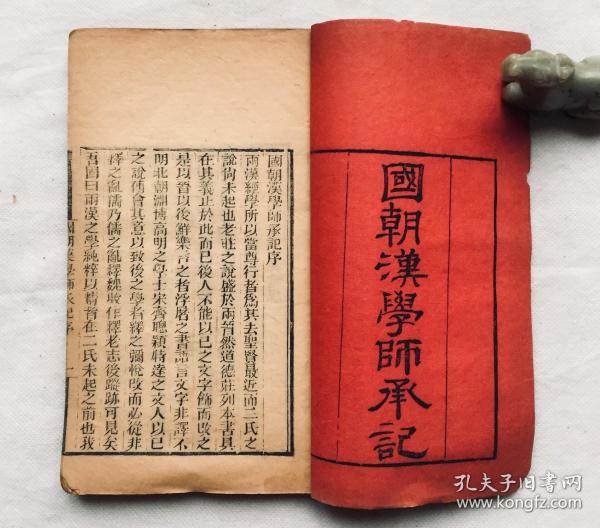 國朝漢學師承記
國朝漢學師承記序
兩漢經學所以當尊行者爲其去聖賢最近而二氏之
說尙未起也老莊之說盛於兩晉然道德莊列本書具
在其義止於此而已後人不能以己之文字飾而改之
是以晉以後鮮樂言之者浮屠之書語言文字非譯不
明北朝淵博高明之學士宋齊聰穎特達之文人以己
之說傅會其意以致後之學者繹之彌悅改而必從非
釋之亂儒乃儒之亂釋魏收作釋老志後蹤跡可見矣
吾固曰兩漢之學純粹以精者在二氏未起之前也我
國朝漢學師承記序
一
孔夫子旧書网
www.kongfz.com